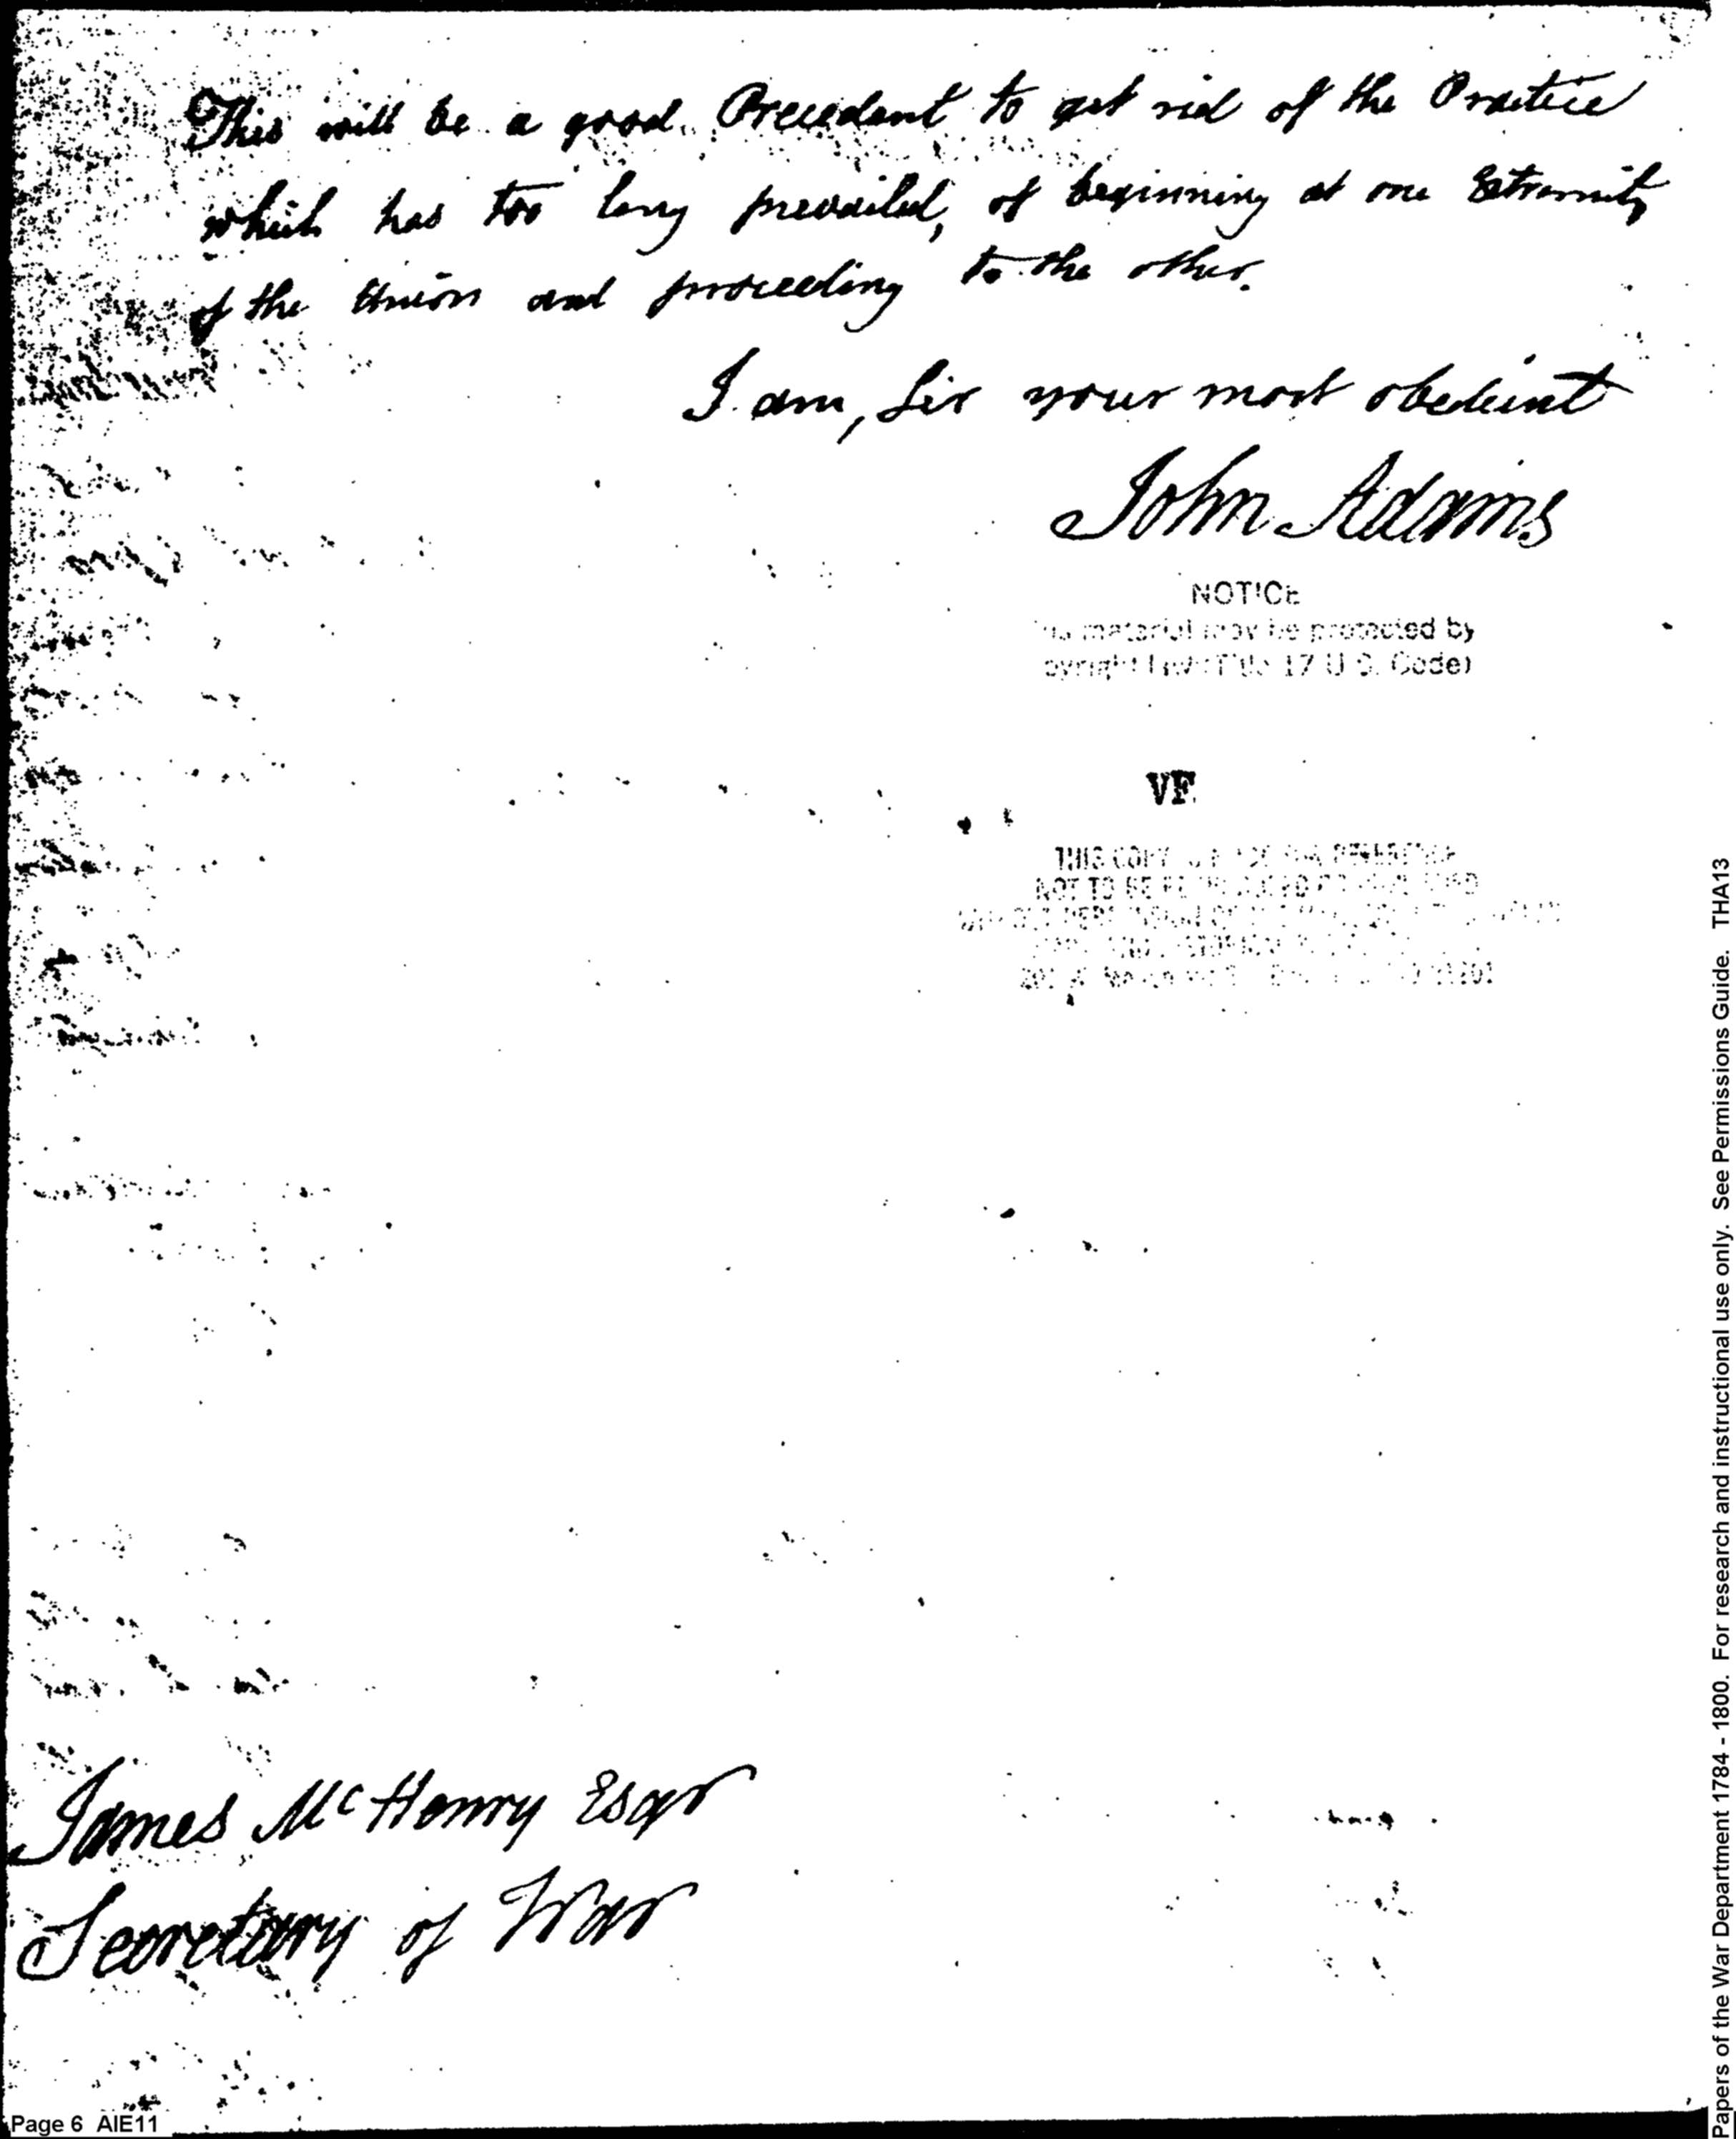 This will be a good Precedent to get rid of the Practice
which has too long prevailed, of beginning at one Extremity
of the Union and proceeding to the other.
I am, Sir your most obedient
John Adams
NOTICE
material may be protected by
17 U.S. Code)
VF
THIS COPY
NOT TO BE
James McHenry Esqr
Secretary of War
Page 6 AIE11
Papers of the War Department 1784 - 1800. For research and instructional use only. See Permissions Guide. THA13